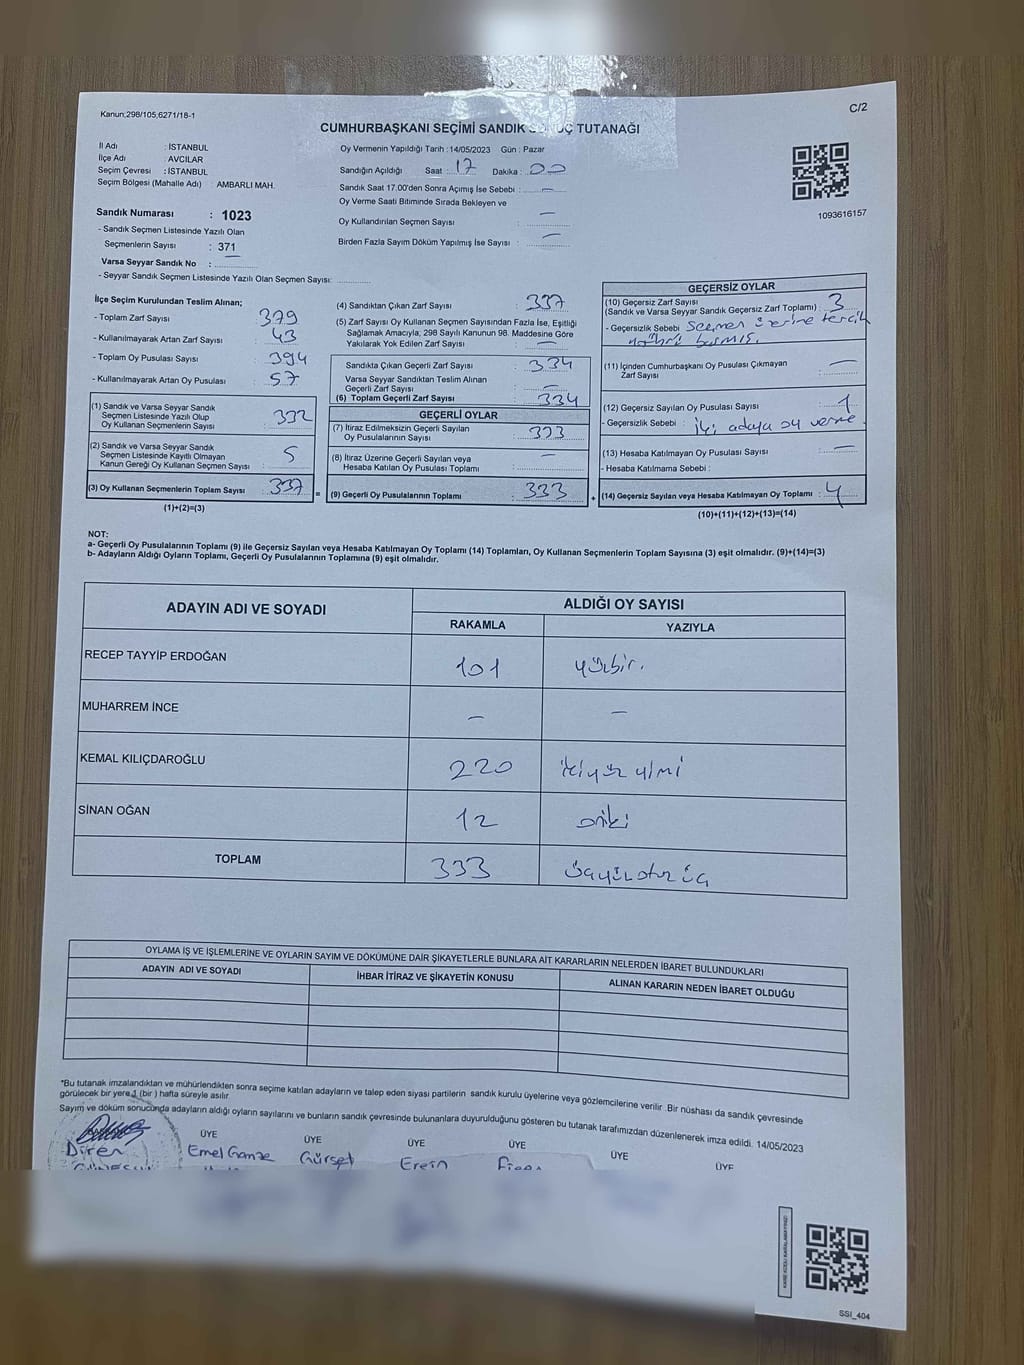 Kanun;298/105,6271/18-1
C/2
CUMHURBAŞKANI SEÇİMİ SANDIK TUTANAĞI
İl Adı : İSTANBUL
İlçe Adı : AVCILAR
Seçim Çevresi : İSTANBUL
Seçim Bölgesi (Mahalle Adı) : AMBARLI MAH.
Oy Vermenin Yapıldığı Tarih : 14/05/2023 Gün : Pazar
Sandığın Açıldığı Saat : 17 Dakika : 00
Sandık Saat 17.00'den Sonra Açımış İse Sebebi : —
Oy Verme Saati Bitiminde Sırada Bekleyen ve
Oy Kullandırılan Seçmen Sayısı : —
Birden Fazla Sayım Döküm Yapılmış İse Sayısı : —
1093616157
Sandık Numarası : 1023
- Sandık Seçmen Listesinde Yazılı Olan
Seçmenlerin Sayısı : 371
Varsa Seyyar Sandık No :
- Seyyar Sandık Seçmen Listesinde Yazılı Olan Seçmen Sayısı:
İlçe Seçim Kurulundan Teslim Alınan;
- Toplam Zarf Sayısı : 379
- Kullanılmayarak Artan Zarf Sayısı : 43
- Toplam Oy Pusulası Sayısı : 394
- Kullanılmayarak Artan Oy Pusulası : 57
(1) Sandık ve Varsa Seyyar Sandık
Seçmen Listesinde Yazılı Olup
Oy Kullanan Seçmenlerin Sayısı : 332
(2) Sandık ve Varsa Seyyar Sandık
Seçmen Listesinde Kayıtlı Olmayan
Kanun Gereği Oy Kullanan Seçmen Sayısı : 5
(3) Oy Kullanan Seçmenlerin Toplam Sayısı : 337
(1)+(2)=(3)
=
(4) Sandıktan Çıkan Zarf Sayısı : 337
(5) Zarf Sayısı Oy Kullanan Seçmen Sayısından Fazla İse, Eşitliği
Sağlamak Amacıyla, 298 Sayılı Kanunun 98. Maddesine Göre
Yakılarak Yok Edilen Zarf Sayısı : —
Sandıkta Çıkan Geçerli Zarf Sayısı : 334
Varsa Seyyar Sandıktan Teslim Alınan
Geçerli Zarf Sayısı : —
(6) Toplam Geçerli Zarf Sayısı : 334
GEÇERLİ OYLAR
(7) İtiraz Edilmeksizin Geçerli Sayılan
Oy Pusulalarının Sayısı : 333
(8) İtiraz Üzerine Geçerli Sayılan veya
Hesaba Katılan Oy Pusulası Toplamı : —
(9) Geçerli Oy Pusulalarının Toplamı : 333
+
GEÇERSİZ OYLAR
(10) Geçersiz Zarf Sayısı
(Sandık ve Varsa Seyyar Sandık Geçersiz Zarf Toplamı) : 3
- Geçersizlik Sebebi : Seçmen üzerine tercih
mührü basmış.
(11) İçinden Cumhurbaşkanı Oy Pusulası Çıkmayan
Zarf Sayısı : —
(12) Geçersiz Sayılan Oy Pusulası Sayısı : 1
- Geçersizlik Sebebi : İki adaya oy verme
(13) Hesaba Katılmayan Oy Pusulası Sayısı : —
- Hesaba Katılmama Sebebi :
(14) Geçersiz Sayılan veya Hesaba Katılmayan Oy Toplamı : 4
(10)+(11)+(12)+(13)=(14)
NOT:
a- Geçerli Oy Pusulalarının Toplamı (9) ile Geçersiz Sayılan veya Hesaba Katılmayan Oy Toplamı (14) Toplamları, Oy Kullanan Seçmenlerin Toplam Sayısına (3) eşit olmalıdır. (9)+(14)=(3)
b- Adayların Aldığı Oyların Toplamı, Geçerli Oy Pusulalarının Toplamına (9) eşit olmalıdır.
ADAYIN ADI VE SOYADI
ALDIĞI OY SAYISI
RAKAMLA YAZIYLA
RECEP TAYYİP ERDOĞAN 101 yüzbir.
MUHARREM İNCE — —
KEMAL KILIÇDAROĞLU 220 ikiyüz yirmi
SİNAN OĞAN 12 oniki
TOPLAM 333 üçyüzotuz üç
OYLAMA İŞ VE İŞLEMLERİNE VE OYLARIN SAYIM VE DÖKÜMÜNE DAİR ŞİKAYETLERLE BUNLARA AİT KARARLARIN NELERDEN İBARET BULUNDUKLARI
ADAYIN ADI VE SOYADI İHBAR İTİRAZ VE ŞİKAYETİN KONUSU ALINAN KARARIN NEDEN İBARET OLDUĞU
*Bu tutanak imzalandıktan ve mühürlendikten sonra seçime katılan adayların ve talep eden siyasi partilerin sandık kurulu üyelerine veya gözlemcilerine verilir .Bir nüshası da sandık çevresinde
görülecek bir yere 1 (bir ) hafta süreyle asılır.
Sayım ve döküm sonucunda adayların aldığı oyların sayılarını ve bunların sandık çevresinde bulunanlara duyurulduğunu gösteren bu tutanak tarafımızdan düzenlenerek imza edildi. 14/05/2023
ÜYE ÜYE ÜYE ÜYE ÜYE ÜYE
Diren Emel Gamze Gürsel
SSI_404